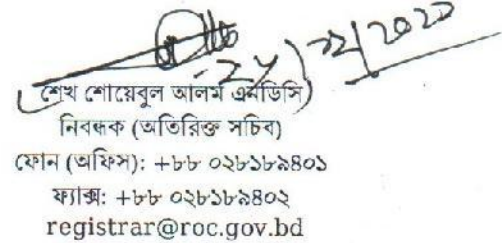 শেখ শোয়েবুল আলম এনডিসি
নিবন্ধক (অতিরিক্ত সচিব)
ফোন (অফিস): +৮৮ ০২৮১৮৯৪০১
ফ্যাক্স: +৮৮ ০২৮১৮৯৪০২
registrar@roc.gov.bd